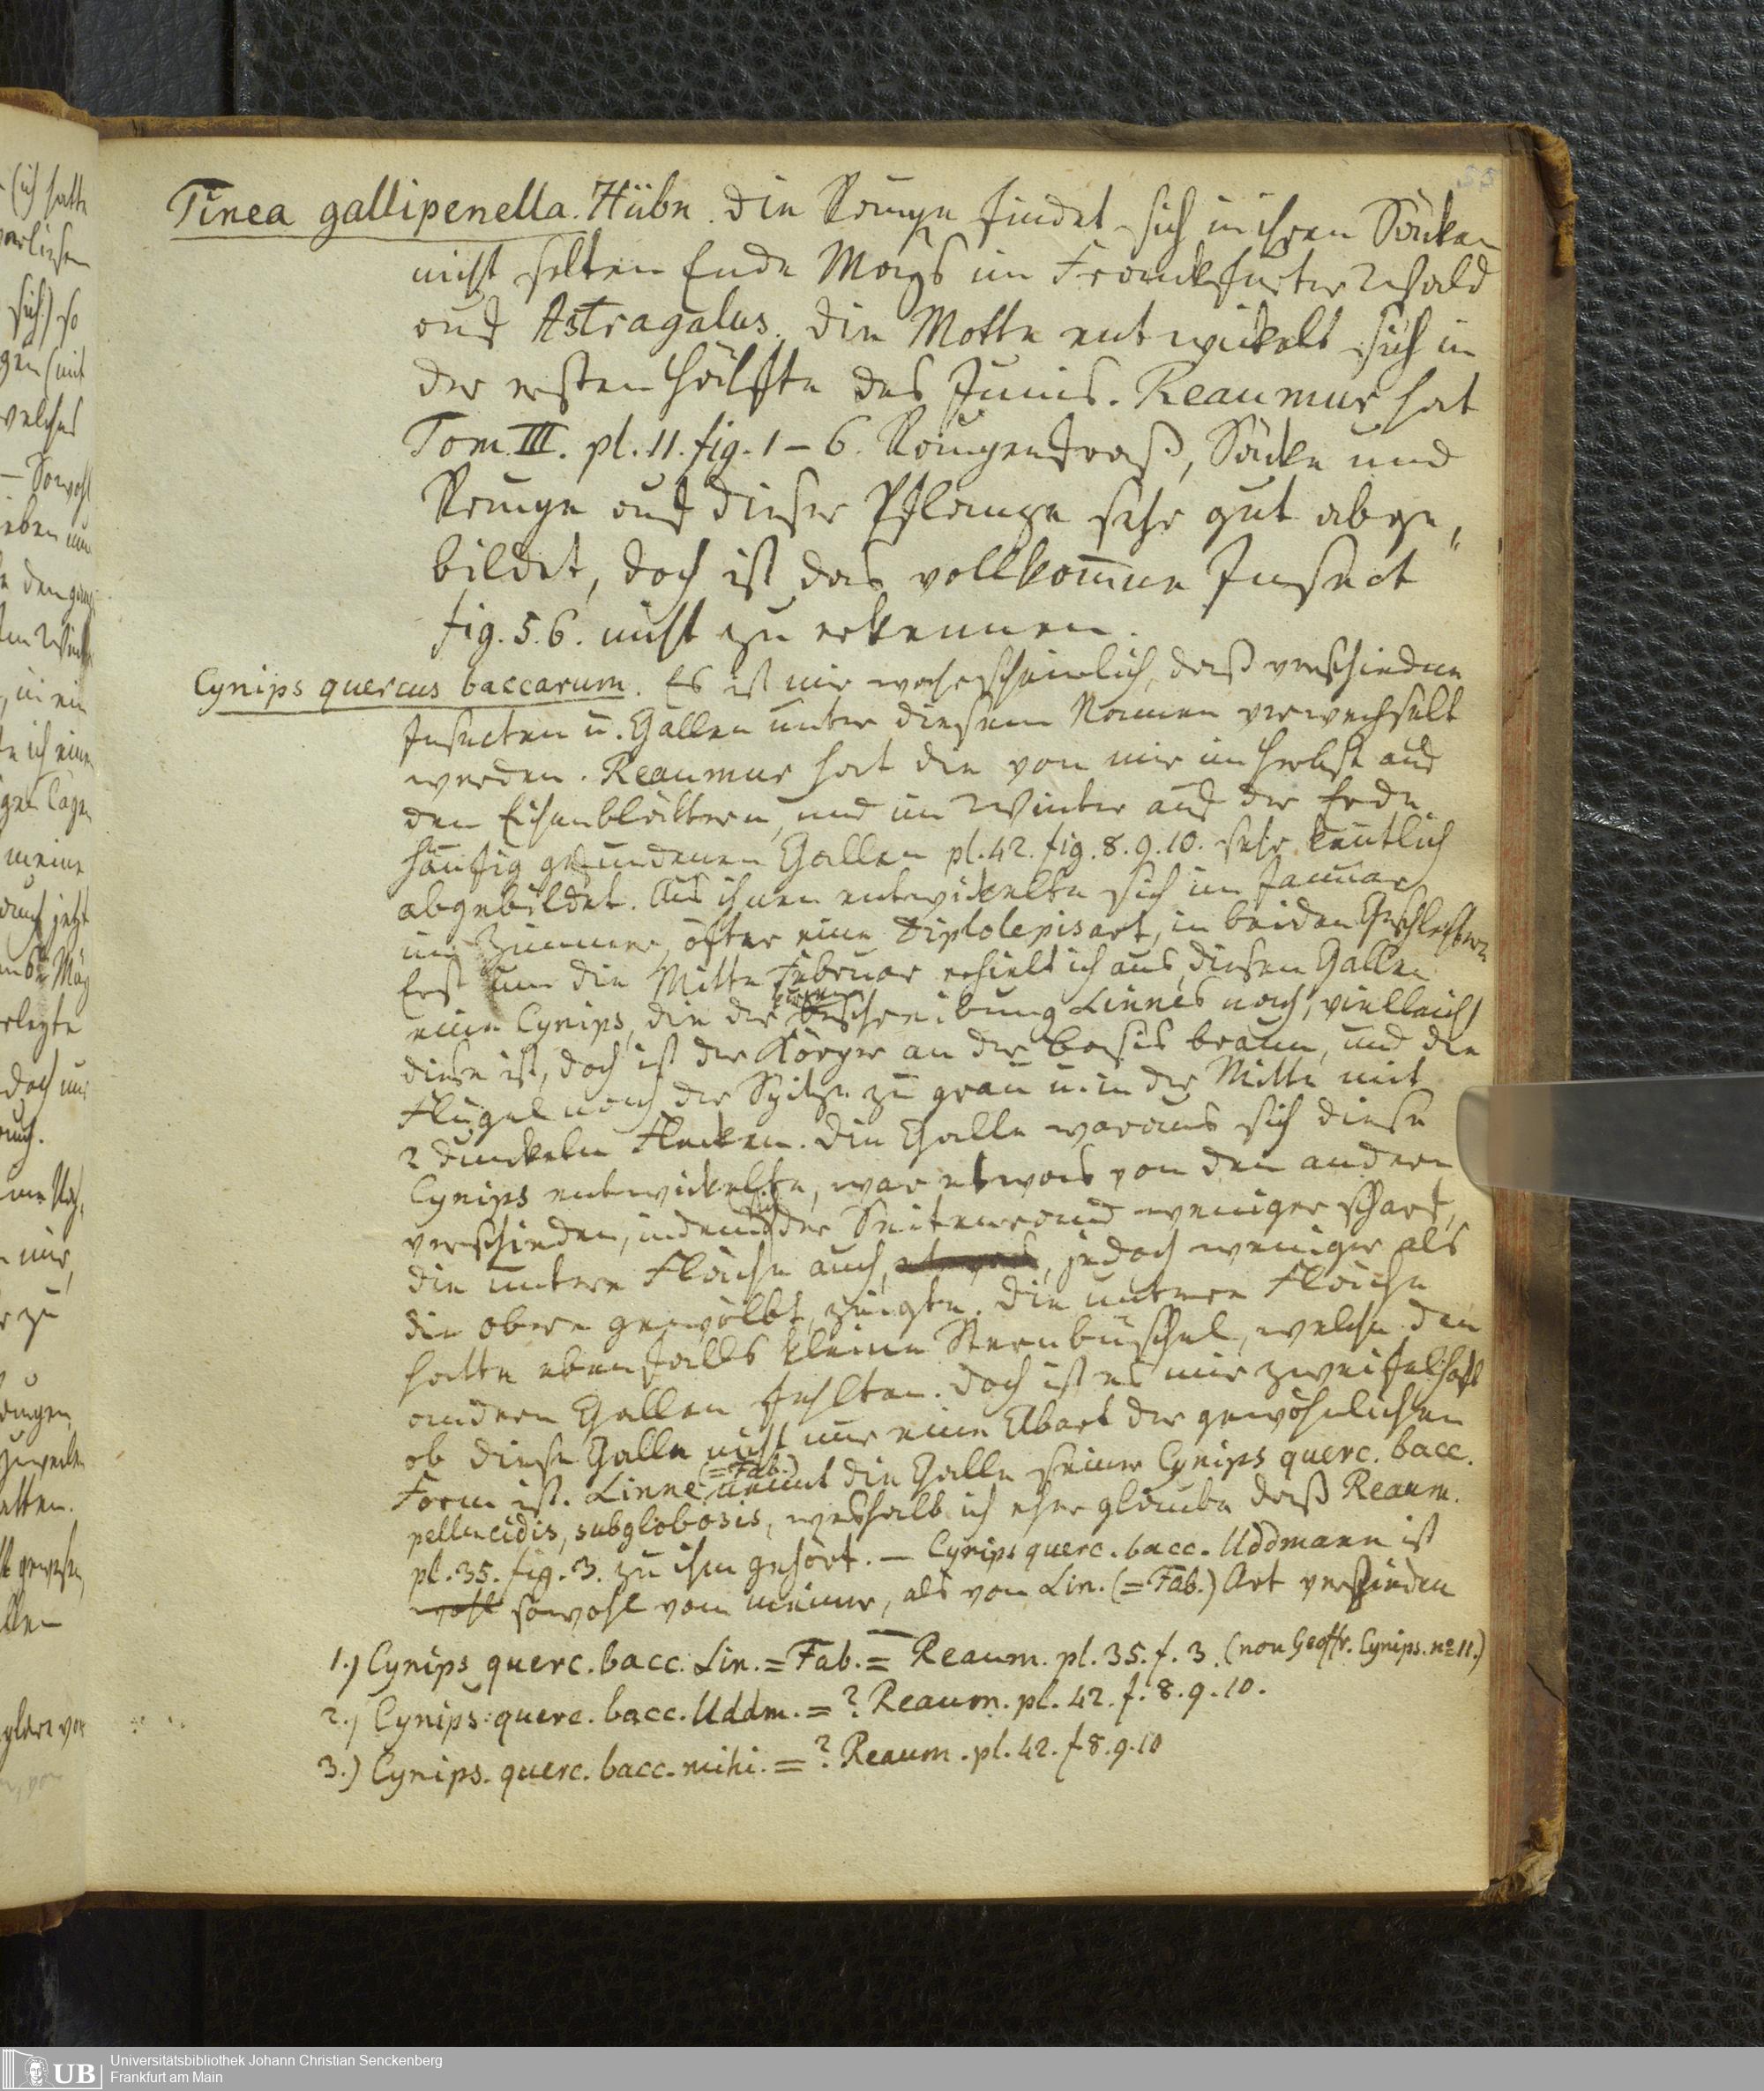 55
Tinea gallipenella. Hübn. Die Raupe findet sich in ihren Säcken
nicht selten Ende Mays im Franckfurter Wald
auf Astragalus. Die Motte entwickelt sich in
der ersten Hälffte des Junis. Reaumur hat
Tom. III. pl. 11. fig. 1–6. Raupenfraß, Säcke und
Raupe auf dieser Pflanze sehr gut abge„
bildet, doch ist das vollkom̅ne Insect
fig. 5. 6. nicht zu erkennen.
Cynips quercus baccarum. Es ist mir wahrscheinlich, daß verschiedne
Insecten u. Gallen unter diesem Namen verwechselt
werden. Reaumur hat die von mir im Herbst auf
den Eichenblättern, und im Winter auf der Erde
häufig gefundenen Gallen pl. 42. fig. 8. 9. 10. sehr kentlich
abgebildet. Aus ihnen entwickelte sich im Januar
im Zimmer, öfter eine Diplolepisart, in beiden Geschlechtern
Erst um die Mitte Februar erhielt ich aus diesen Gallen
eine Cynips, die der kurzen Beschreibung Linnés nach, vielleicht
diese ist, doch ist der Körper an der Basis braun, und die
Flügel nach der Spitze zu grau u. in der Mitte mit
2 dunckeln Flecken. Die Galle woraus sich diese
Cynips entwickelte, war etwas von den andern
verschieden, indem sich der Seitenrand weniger scharf,
die untere Fläche auch, etwas, jedoch weniger als
die obere gewölbt, zeigte. Die untere Fläche
hatte ebenfalls kleine Sternbüschel, welche den
andern Gallen fehlten. Doch ist es mir zweifelhaft
ob diese Galle nicht nur eine Abart der gewöhnlichen
Form ist. Linne (=Fab.) nennt die Galle seiner Cynips querc. bacc.
pellucidis, subglobosis, weshalb ich eher glaube daß Reaum.
pl. 35. fig. 3. zu ihm gehört. — Cynips querc. bacc. Uddmann ist
wohl sowohl von meiner, als von Lin. (=Fab.) Art verschieden
1.) Cynips querc. bacc. Lin. = Fab. = Reaum. pl. 35. f. 3. (non Geoffr. Cynips. no 11.)
2.) Cynips querc. bacc. Uddm. = ? Reaum. pl. 42. f. 8. 9. 10.
3.) Cynips. querc. bacc. mihi. = ? Reaum. pl. 42. f 8. 9. 10
UB
Universitätsbibliothek Johann Christian Senckenberg
Frankfurt am Main